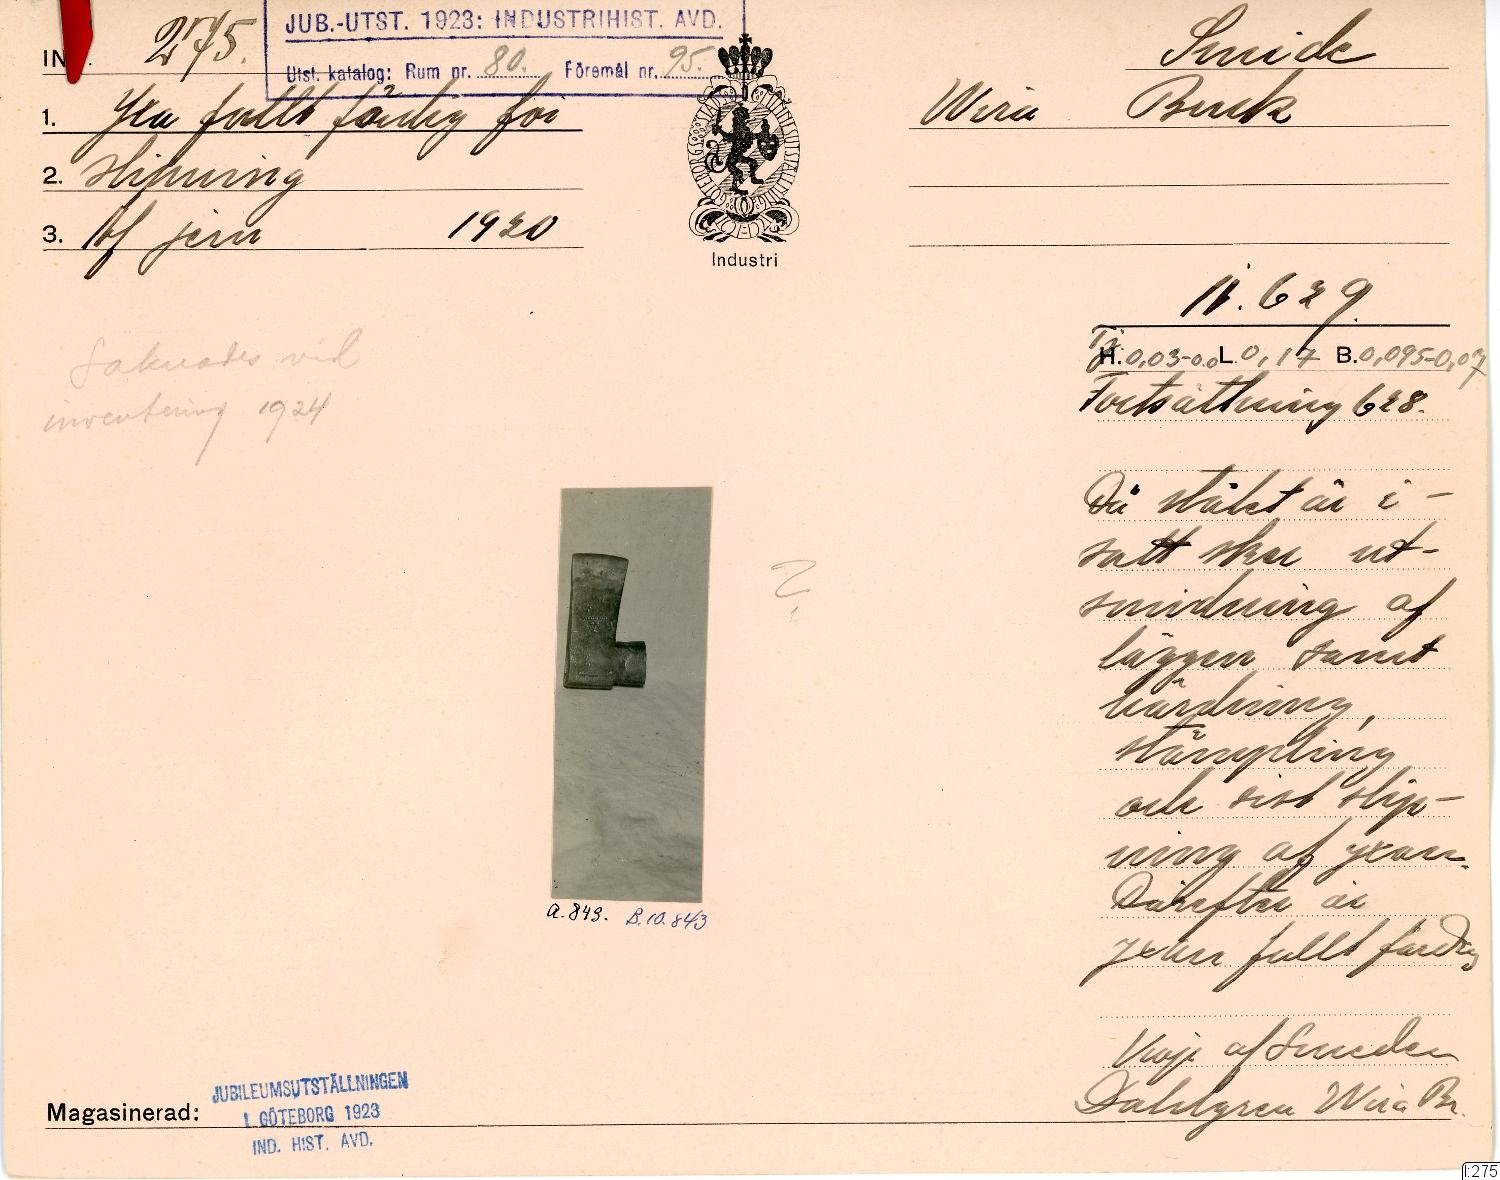 JUB.-UTST. 1923: INDUSTRIHIST. AVD.
Utst. katalog: Rum nr. 80. Föremål nr. 95.
IN 275.
1. Yxa fullt färdig för
2. slipning
3. Af jern 1920
GÖTEBORGS STADS JUBILEUMSUTSTÄLLNING
Industri
Smide
Wira Bruk
N. 629.
Tj.
H. 0,03-0.0 L. 0,17 B. 0,095-0,07
Fortsättning 628.
Då stålet är i-
satt sker ut-
smidning af
läggen samt
härdning,
stämpling
och sist slip-
ning af yxan.
Därefter är
yxan fullt färdig
Köpt af Smeden
Dahlgren Wira Br.
Saknades vid
inventering 1924
?
A.843. B.10.843
Magasinerad:
JUBILEUMSUTSTÄLLNINGEN
I GÖTEBORG 1923
IND. HIST. AVD.
I:275